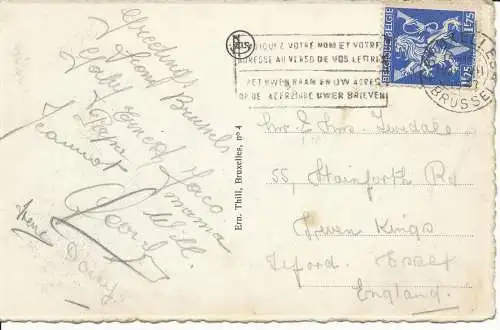 Greetings
from Brussels
Ernest Jaco
Pepa mama
Jeannot Will
Georges
Irene Daisy
Ern. Thill, Bruxelles, nº 4
INDIQUEZ VOTRE NOM ET VOTRE
ADRESSE AU VERSO DE VOS LETTRES
ZET UWEN NAAM EN UW ADRES
OP DE KEERZIJDE UWER BRIEVEN
BELGIQUE BELGIE
1.75
1.75
BRUSSEL
Mr & Mrs Tweedale
55 Stainforth Rd
Seven Kings
Ilford. Essex
England.